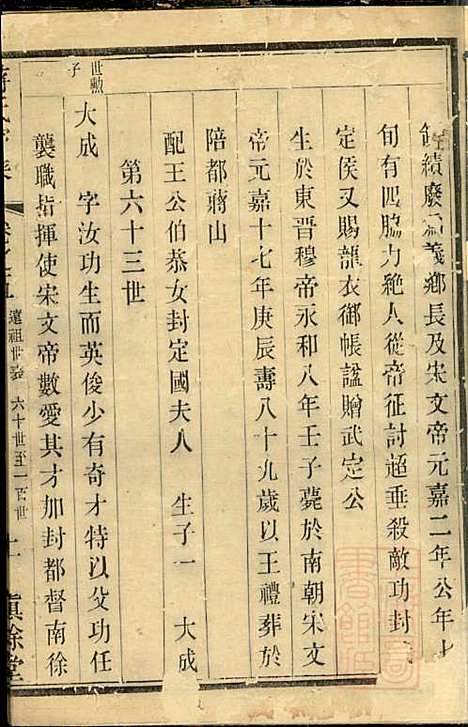 績廢為義鄉長及宋文帝元嘉二年公年七
旬有四脇力絕人從帝征討超垂殺敵功封
定侯又賜龍衣御帳謚贈武定公
生於東晋穆帝永和八年壬子薨於南朝宋文
帝元嘉十七年庚辰壽八十九歲以王禮葬於
陪都蔣山
配王公伯恭女封定國夫人 生子一 大成
第六十三世
世勲子
大成 字汝功生而英俊少有奇才特以父功任
襲職指揮使宋文帝數愛其才加封都督南徐
卷之五 遠祖世系 六十世至一百世 慎徐堂